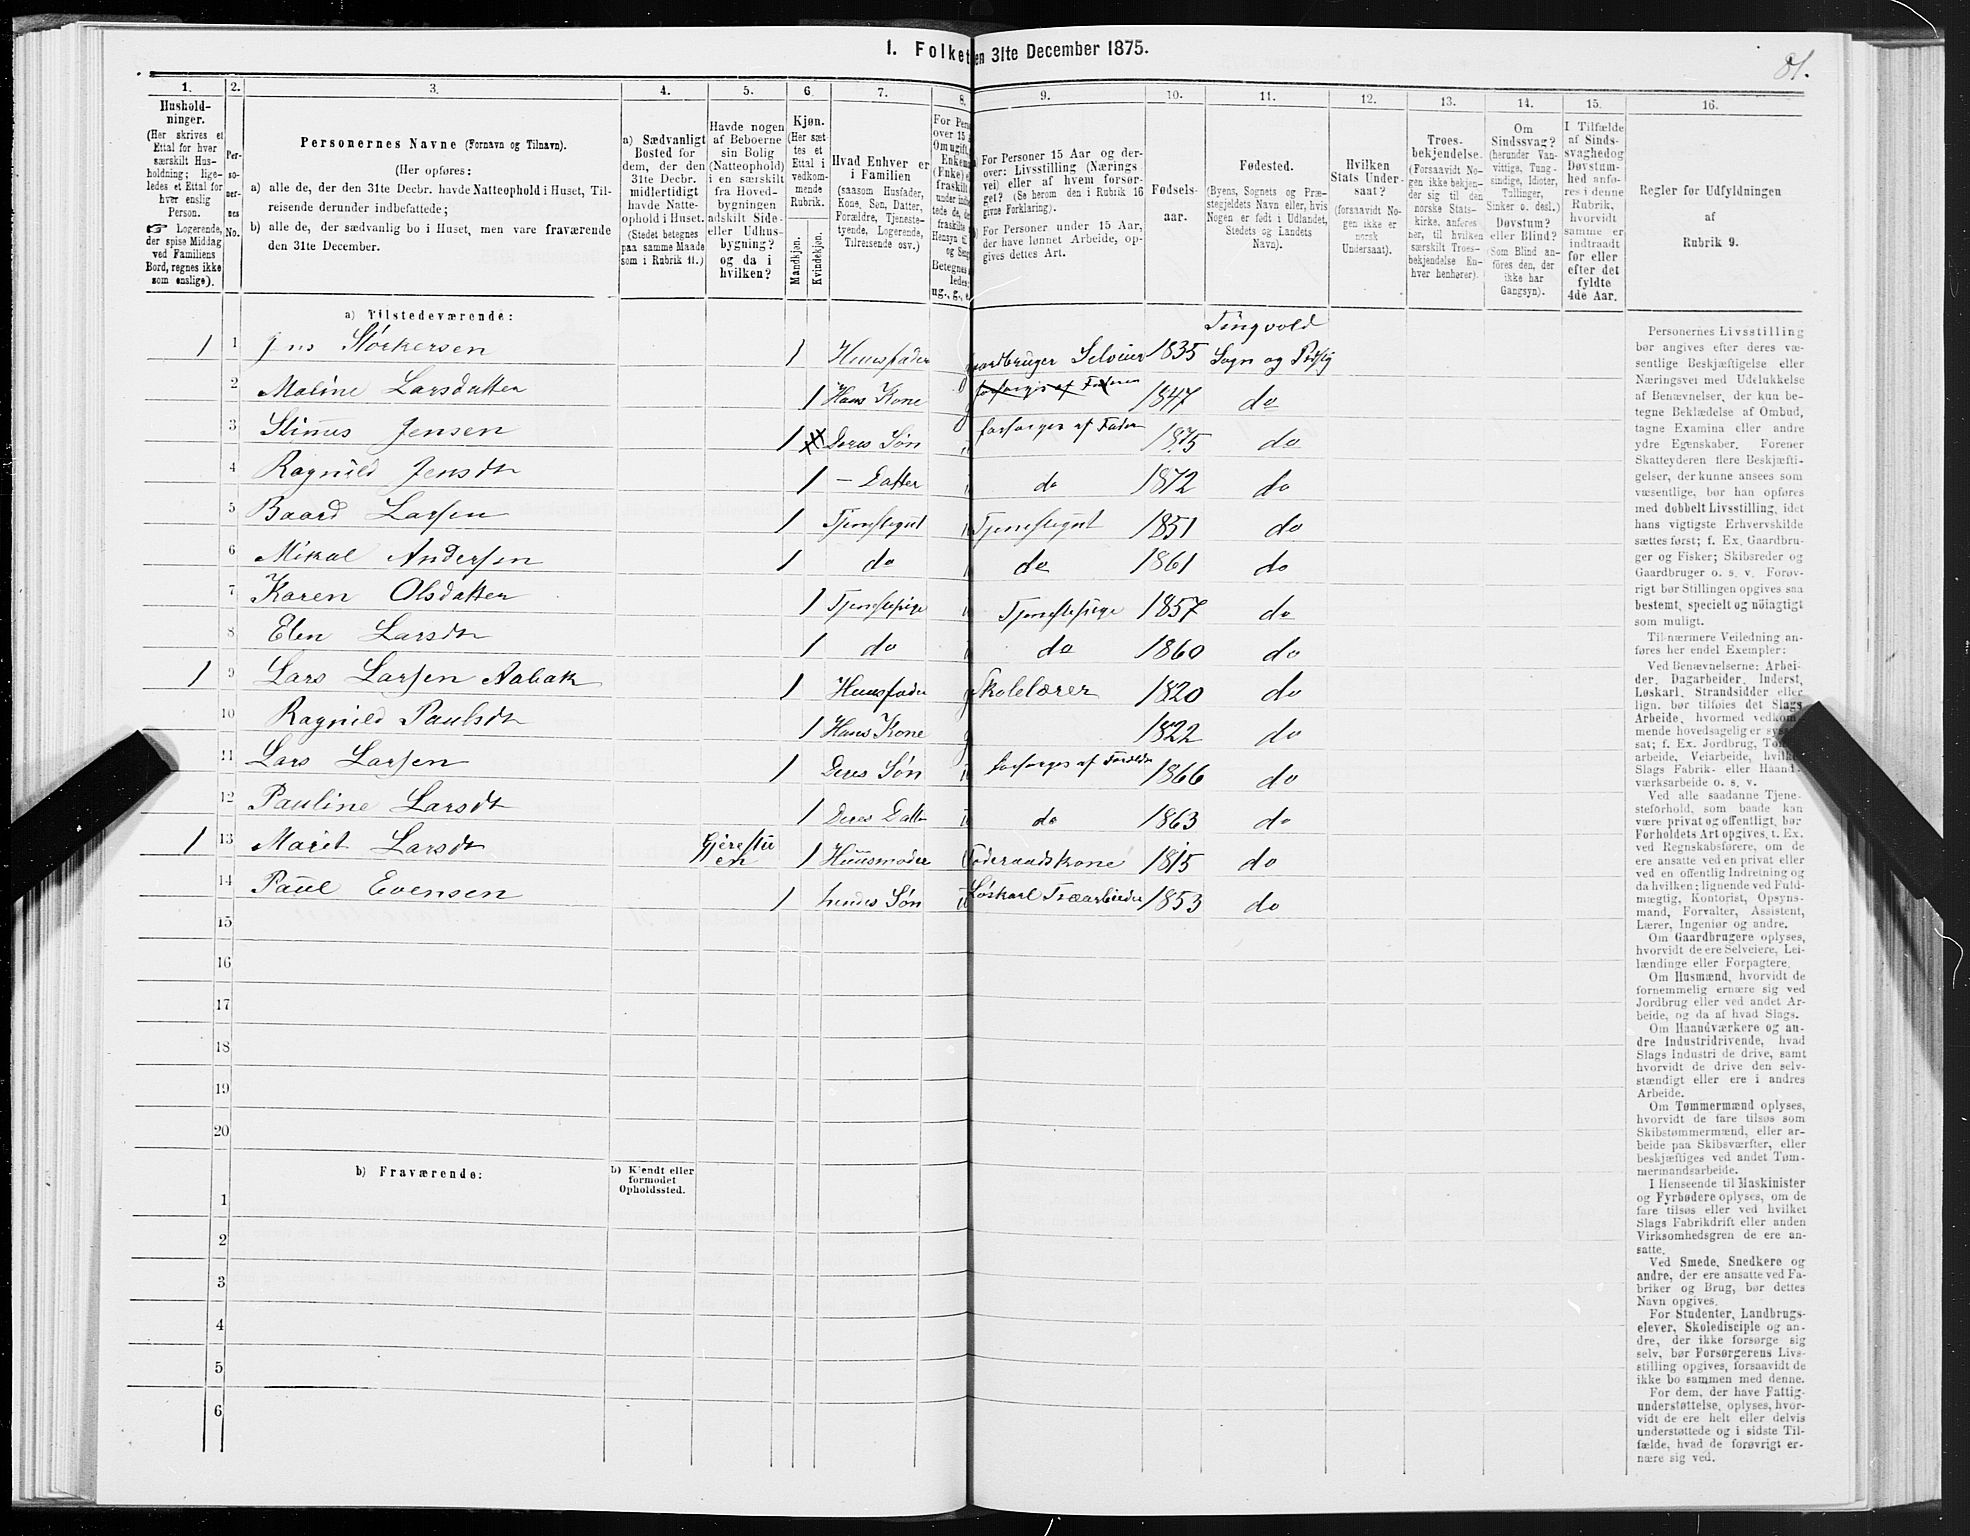 1. Folket en 31te December 1875.
81.
1. 2. 3. 4. 5. 6. 7. 8. 9. 10. 11. 12. 13. 14. 15. 16.
Hushold-
ninger.
(Her skrives et
Ettal for hver
særskilt Hus-
holdning; lige-
ledes et Ettal for
hver enslig
Person.
☞ Logerende,
der spise Middag
ved Familiens
Bord, regnes ikke
som enslige).
Per-
so-
ner-
nes
No.
Personernes Navne (Fornavn og Tilnavn).
(Her opføres:
a) alle de, der den 31te Decbr. havde Natteophold i Huset, Til-
reisende derunder indbefattede;
b) alle de, der sædvanlig bo i Huset, men vare fraværende
den 31te December.
a) Sædvanligt
Bosted for
dem, der den
31te Decbr.
midlertidigt
havde Natte-
ophold i Huset.
(Stedet betegnes
paa samme Maade
som i Rubrik 11.)
Havde nogen
af Beboerne
sin Bolig
(Natteophold)
i en særskilt
fra Hoved-
bygningen
adskilt Side-
eller Udhus-
bygning?
og da i
hvilken?
Kjøn.
(Her sæt-
tes et
Ettal i
vedkom-
mende
Rubrik.
Mandkjøn.
Kvindekjøn.
Hvad Enhver er
i Familien
(saasom Husfader,
Kone, Søn, Datter,
Forældre, Tjeneste-
tyende, Logerende,
Tilreisende osv.)
For Pers
over 15
Om ugift,
Enkem
(Enke) e
fraskilt
under indb
tede de,
fraskilte
Hensyn til
og Seng
Betegnes
ledes:
ug., g., e
For Personer 15 Aar og der-
over: Livsstilling (Nærings
vei) eller af hvem forsør-
get? (Se herom den i Rubrik 16
givne Forklaring).
For Personer under 15 Aar,
der have lønnet Arbeide, op-
gives dettes Art.
Fødsels-
aar.
Fødested.
(Byens, Sognets og Præ-
stegjeldets Navn eller, hvis
Nogen er født i Udlandet,
Stedets og Landets
Navn).
Hvilken
Stats Under-
saat?
(forsaavidt No-
gen ikke er
norsk
Undersaat).
Troes-
bekjendelse.
(Forsaavidt No-
gen ikke bekjen-
der sig til den
norske Stats-
kirke, anføres
her, til hvilken
særskilt Troes-
bekjendelse En-
hver henhører).
Om
Sindssvag?
(herunder Van-
vittige, Tung-
sindige, Idioter,
Tullinger,
Sinker o. desl.)
Døvstum?
eller Blind?
(Som Blind an-
føres den, der
ikke har
Gangsyn).
I Tilfælde
af Sinds-
svaghed og
Døvstum-
hed anfø-
res i denne
Rubrik,
hvorvidt
samme er
indtraadt
før eller
efter det
fyldte
4de Aar.
Regler før Udfyldningen
af
Rubrik 9.
a) Tilstedeværende:
Tingvold
1 1 Jens Størkersen 1 Huusfader g aardbruger Selveier 1835 Sogn og Prstg
2 Maline Larsdatter 1 Hans Kone g forsørges af Faderen 1847 do
3 Stinus Jensen 1 Deres Søn forsørges af Fader 1875 do
4 Ragnild Jensdt 1 – Datter do 1872 do
5 Baard Larsen 1 Tjenestegut Tjenestegut 1851 do
6 Mikal Andersen 1 do do 1861 do
7 Karen Olsdatter 1 Tjenestepige Tjenestepige 1857 do
8 Elen Larsdt 1 do do 1860 do
1 9 Lars Larsen Aabak 1 Huusfader g Skolelærer 1820 do
10 Ragnild Paulsdt 1 Hans Kone g 1822 do
11 Lars Larsen 1 Deres Søn forsørges af Foreldre 1866 do
12 Pauline Larsdt 1 Deres Datter do 1863 do
1 13 Marit Larsdt 1 Huusmoder Føderaadskone 1815 do
14 Paul Evensen 1 hendes Søn Løskarl Træarbeider 1853 do
15
16
17
18
19
20
b) Fraværende:
b) Kjendt eller
formodet
Opholdssted.
1
2
3
4
5
6
Personernes Livsstilling
bør angives efter deres væ-
sentlige Beskjæftigelse eller
Næringsvei med Udelukkelse
af Benævnelser, der kun be-
tegne Beklædelse af Ombud,
tagne Examina eller andre
ydre Egenskaber. Forener
Skatteyderen flere Beskjæfti-
gelser, der kunne ansees som
væsentlige, bør han opføres
med dobbelt Livsstilling, idet
hans vigtigste Erhvervskilde
sættes først; f. Ex. Gaardbru-
ger og Fisker; Skibsreder og
Gaardbruger o. s. v. Forøv-
rigt bør Stillingen opgives saa
bestemt, specielt og nöiagtigt
som muligt.
Til nærmere Veiledning an-
føres her endel Exempler:
Ved Benævnelserne: Arbei-
der, Dagarbeider, Inderst,
Løskarl, Strandsidder eller
lign. bør tilføies det Slags
Arbeide, hvormed vedkom-
mende hovedsagelig er syssel-
sat; f. Ex. Jordbrug, Tøm
arbeide, Veiarbeide, hvilke
Slags Fabrik- eller Haand-
værksarbeide o. s. v.
Ved alle saadanne Tjene-
steforhold, som baade kan
være privat og offentligt, bør
Forholdets Art opgives, t. Ex.
ved Regnskabsførere, om de
ere ansatte ved en privat eller
ved en offentlig Indretning og
da hvilken; lignende ved Fuld-
mægtig, Kontorist, Opsyns-
mand, Forvalter, Assistent,
Lærer, Ingeniør og andre.
Om Gaardbrugere oplyses,
hvorvidt de ere Selveiere, Lei-
lændinge eller Forpagtere.
Om Husmænd, hvorvidt de
fornemmelig ernære sig ved
Jordbrug eller ved andet Ar-
beide, og da af hvad Slags.
Om Haandværkere og an-
dre Industridrivende, hvad
Slags Industri de drive, samt
hvorvidt de drive den selv-
stændigt eller ere i andres
Arbeide.
Om Tømmermænd oplyses,
hvorvidt de fare tilsøs som
Skibstømmermænd, eller ar-
beide paa Skibsværfter, eller
beskjæftiges ved andet Tøm-
mermandsarbeide.
I Henseende til Maskinister
og Fyrbødere oplyses, om de
fare tilsøs eller ved hvilket
Slags Fabrikdrift eller anden
Virksomhedsgren de ere an-
satte.
Ved Smede, Snedkere og
andre, der ere ansatte ved Fa-
briker og Brug, bør dettes
Navn opgives.
For Studenter, Landbrugs-
elever, Skoledisciple og an-
dre, der ikke forsørge sig
selv, bør Forsørgerens Livs-
stilling opgives, forsaavidt de
ikke bo sammen med denne.
For dem, der have Fattig-
understøttelse, oplyses, hvor-
vidt de ere helt eller delvis
understøttede og i sidste Til-
fælde, hvad de forøvrigt er-
nære sig ved.